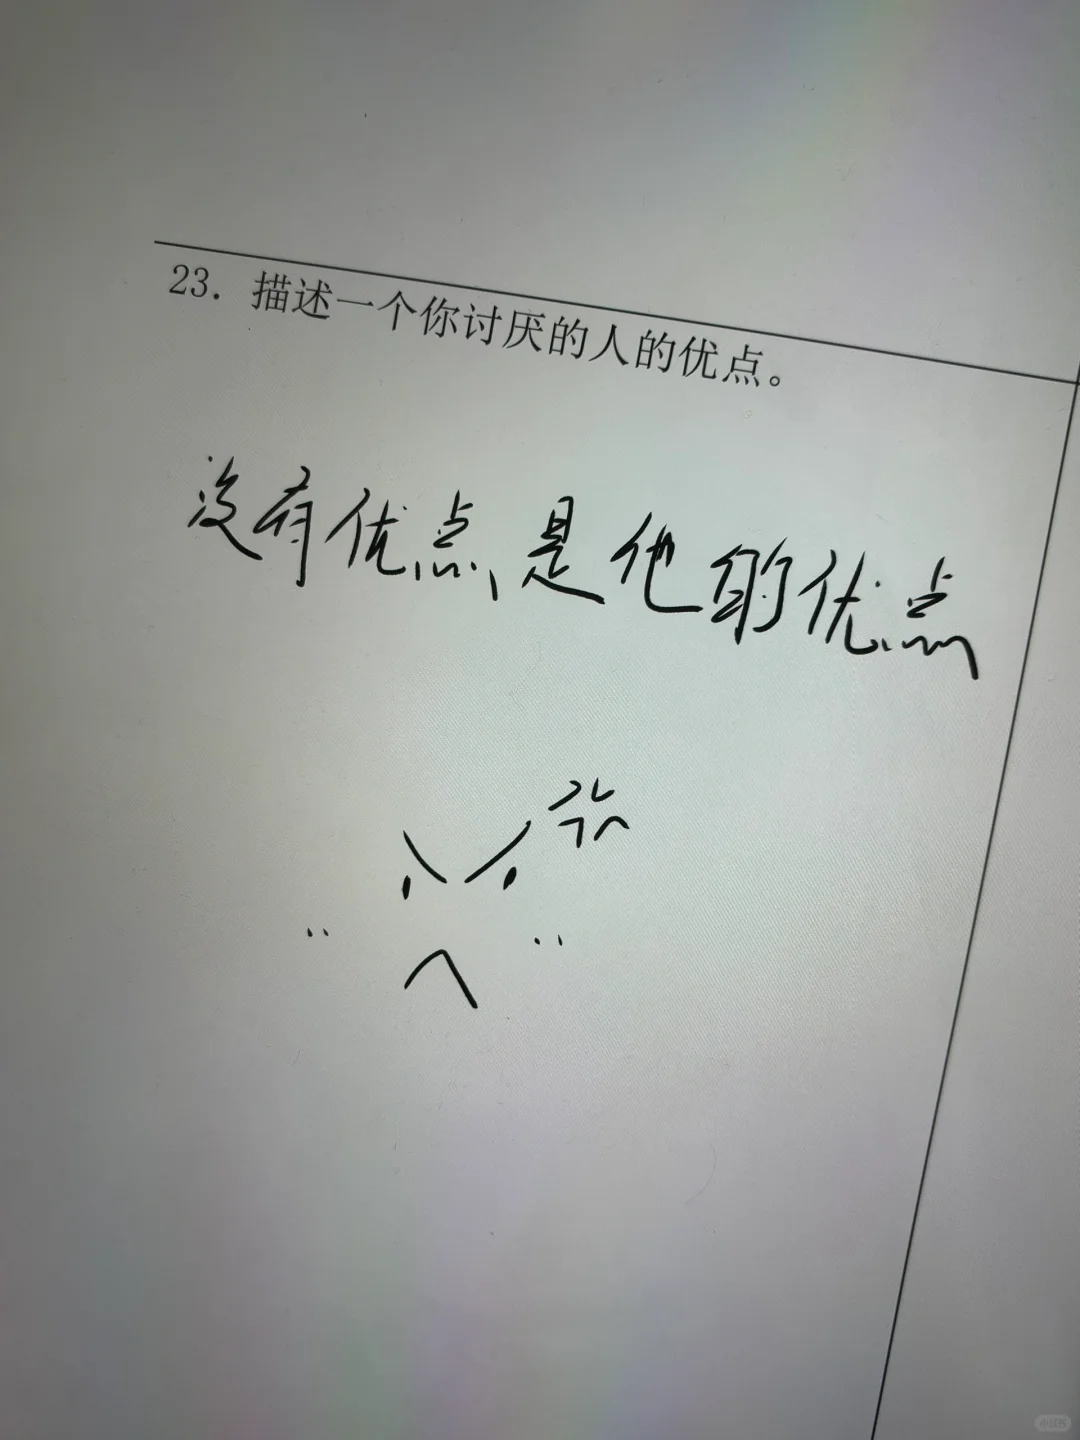 23. 描述一个你讨厌的人的优点。
没有优点是他的优点
小红书